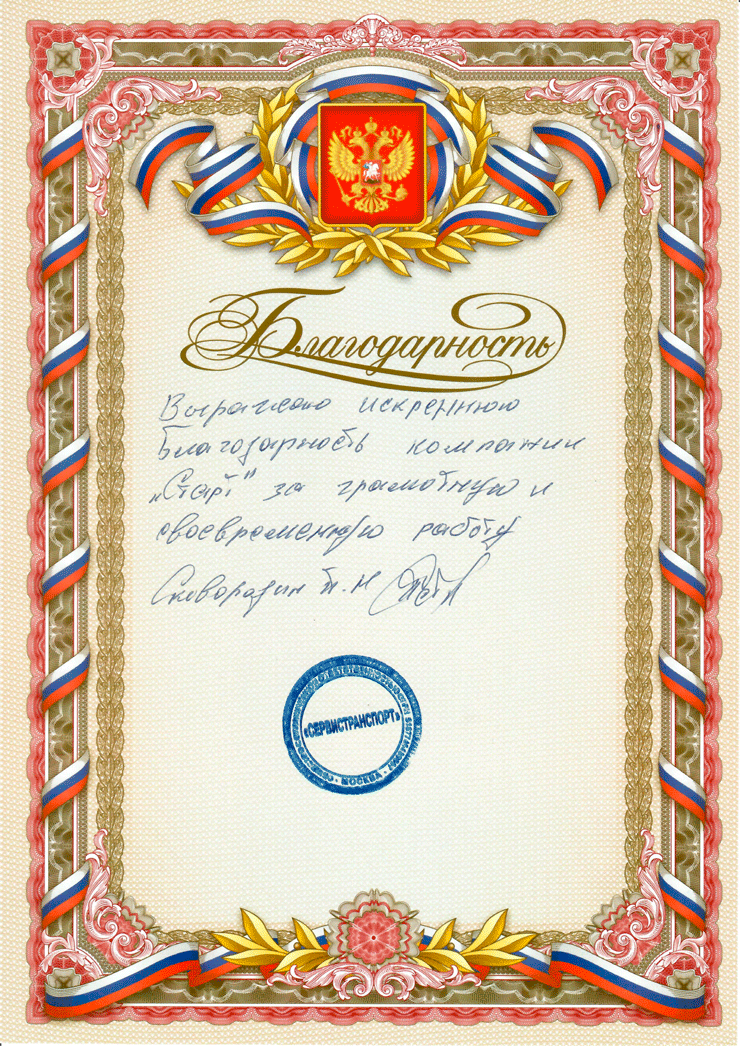 Благодарность
Выражаю искреннюю
Благодарность компании
„Старт" за грамотную и
своевременную работу
Сковородин
«СЕРВИСТРАНСПОРТ»
МОСКВА